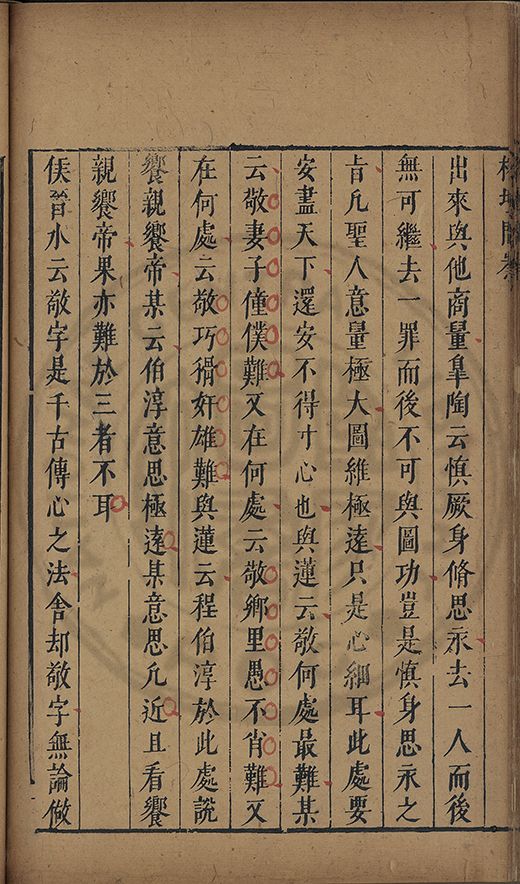 榕壇問業
出來與他商量臯陶云慎厥身脩思永去一人而後
無可繼去一罪而後不可與圖功豈是慎身思永之
旨凡聖人意量極大圖維極遠只是心細耳此處要
安盡天下還安不得寸心也與蓮云敬何處最難某
云敬妻子僮僕難又在何處云敬鄉里愚不肖難又
在何處云敬巧猾奸雄難與蓮云程伯淳於此處說
饗親饗帝某云伯淳意思極遠某意思凡近且看饗
親饗帝果亦難於三者不耳
侯晉水云敬字是千古傳心之法舍却敬字無論做